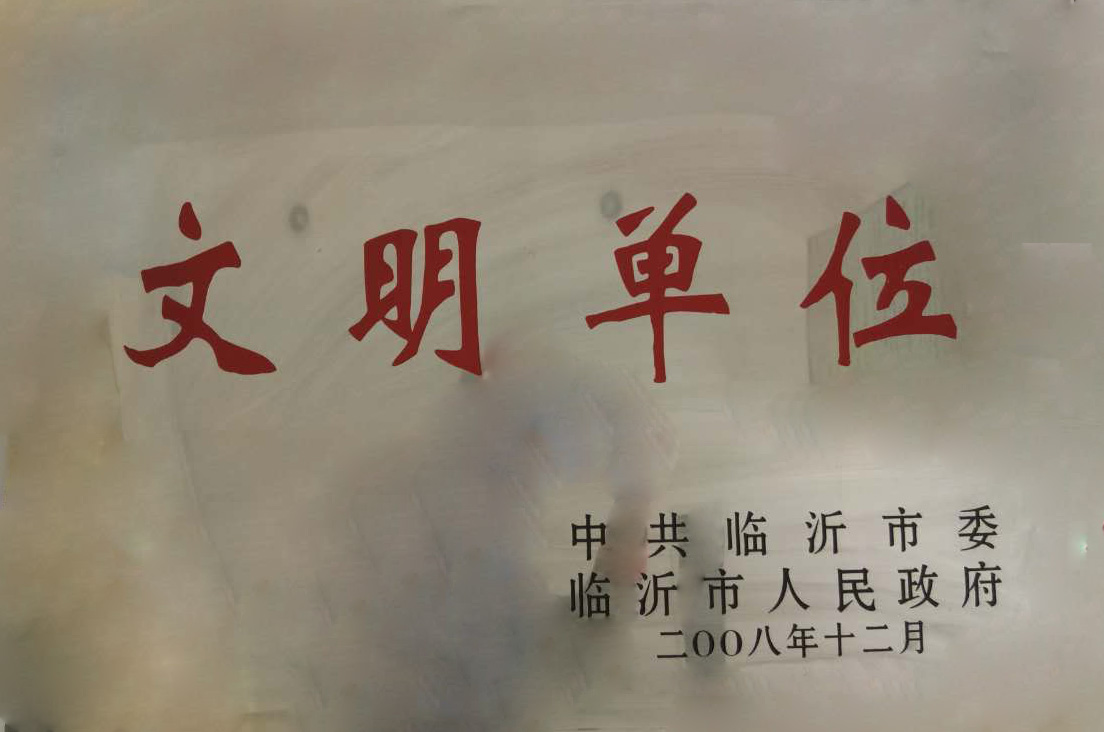 文明单位
中共临沂市委
临沂市人民政府
二〇〇八年十二月